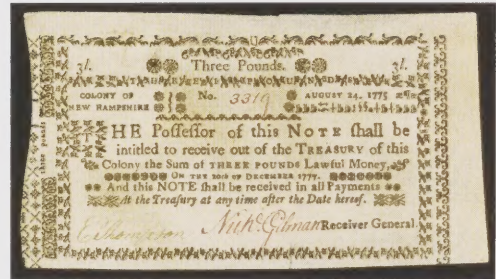 Three Pounds.
3l. 3l.
COLONY OF NEW HAMPSHIRE No. 3319 AUGUST 24. 1775
THE Possessor of this NOTE shall be
intitled to receive out of the TREASURY of this
Colony the Sum of THREE POUNDS Lawful Money,
ON THE 20th OF DECEMBER 1779.
And this NOTE shall be received in all Payments
At the Treasury at any time after the Date hereof.
E Thompson Nichs. Gilman Receiver General.
three pounds